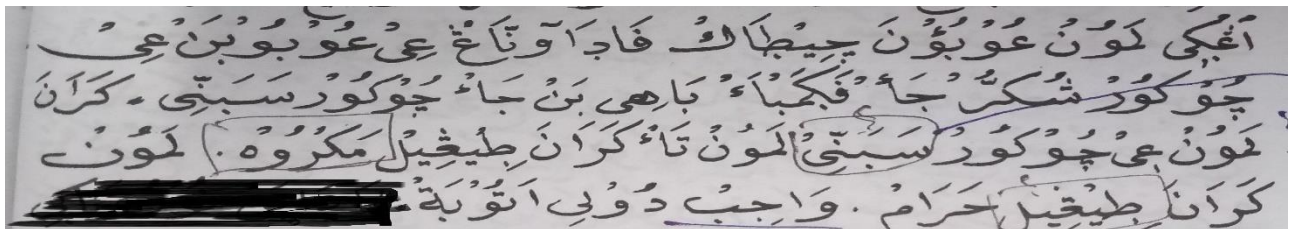 اَغْكَى لَمَوْنْ عَوْبَوْنَ چِيْطَاكْ فَادَا وْتَاغْ عِىْ عَوْبَوْبَنْ عِىْ
چُوْكُوْرْ شُكُرْ جَأْ فَكَمْبَاءْ بَاهِى بَنْ جَاءْ چُوْكُوْرْ سَبَنّٓى . كَرَانَ
لَمَوْنْ عِىْ چُوْكُوْرْ سَبَنّٓى لَمَوْنْ تَاءْ كَرَانَ طِيْغْڮِيْلْ مَكْرُوْهْ . لَمَوْنْ
كَرَانَ طِيْغْڮِيْلْ حَرَامْ . وَاجِبْ دُوْلِى اَتَوْبَةْ